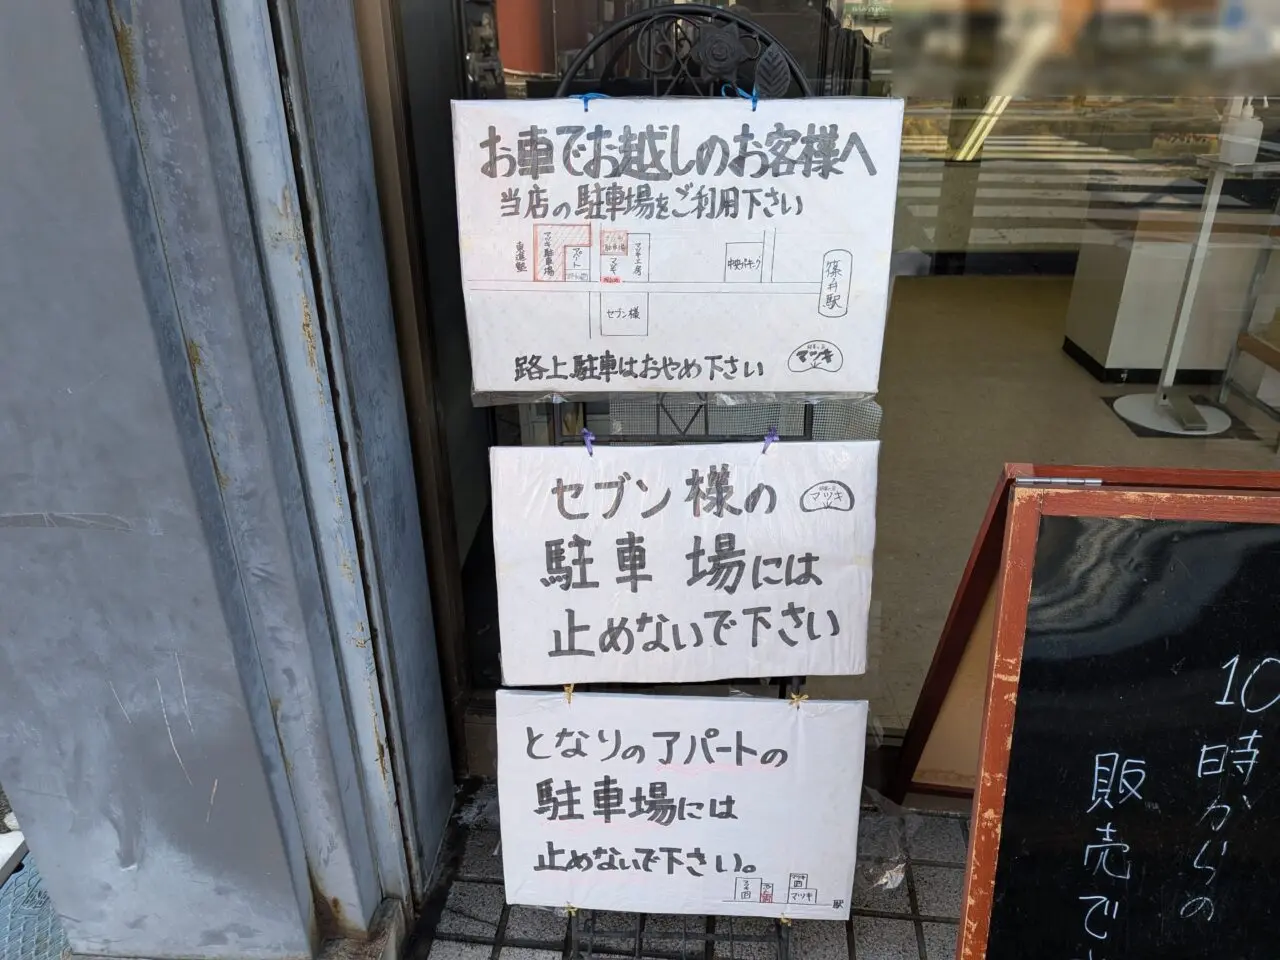 お車でお越しのお客様へ
当店の駐車場をご利用下さい
東進塾
マツキ駐車場
アパート
マツキ
駐車場
マツキ
マツキ工房
セブン様
中央パーキング
篠井駅
路上駐車はおやめ下さい
マツキ
セブン様の
マツキ
駐車場には
止めないで下さい
となりのアパートの
駐車場には
止めないで下さい。
マツキ
マツキ
駅
10時からの
販売で